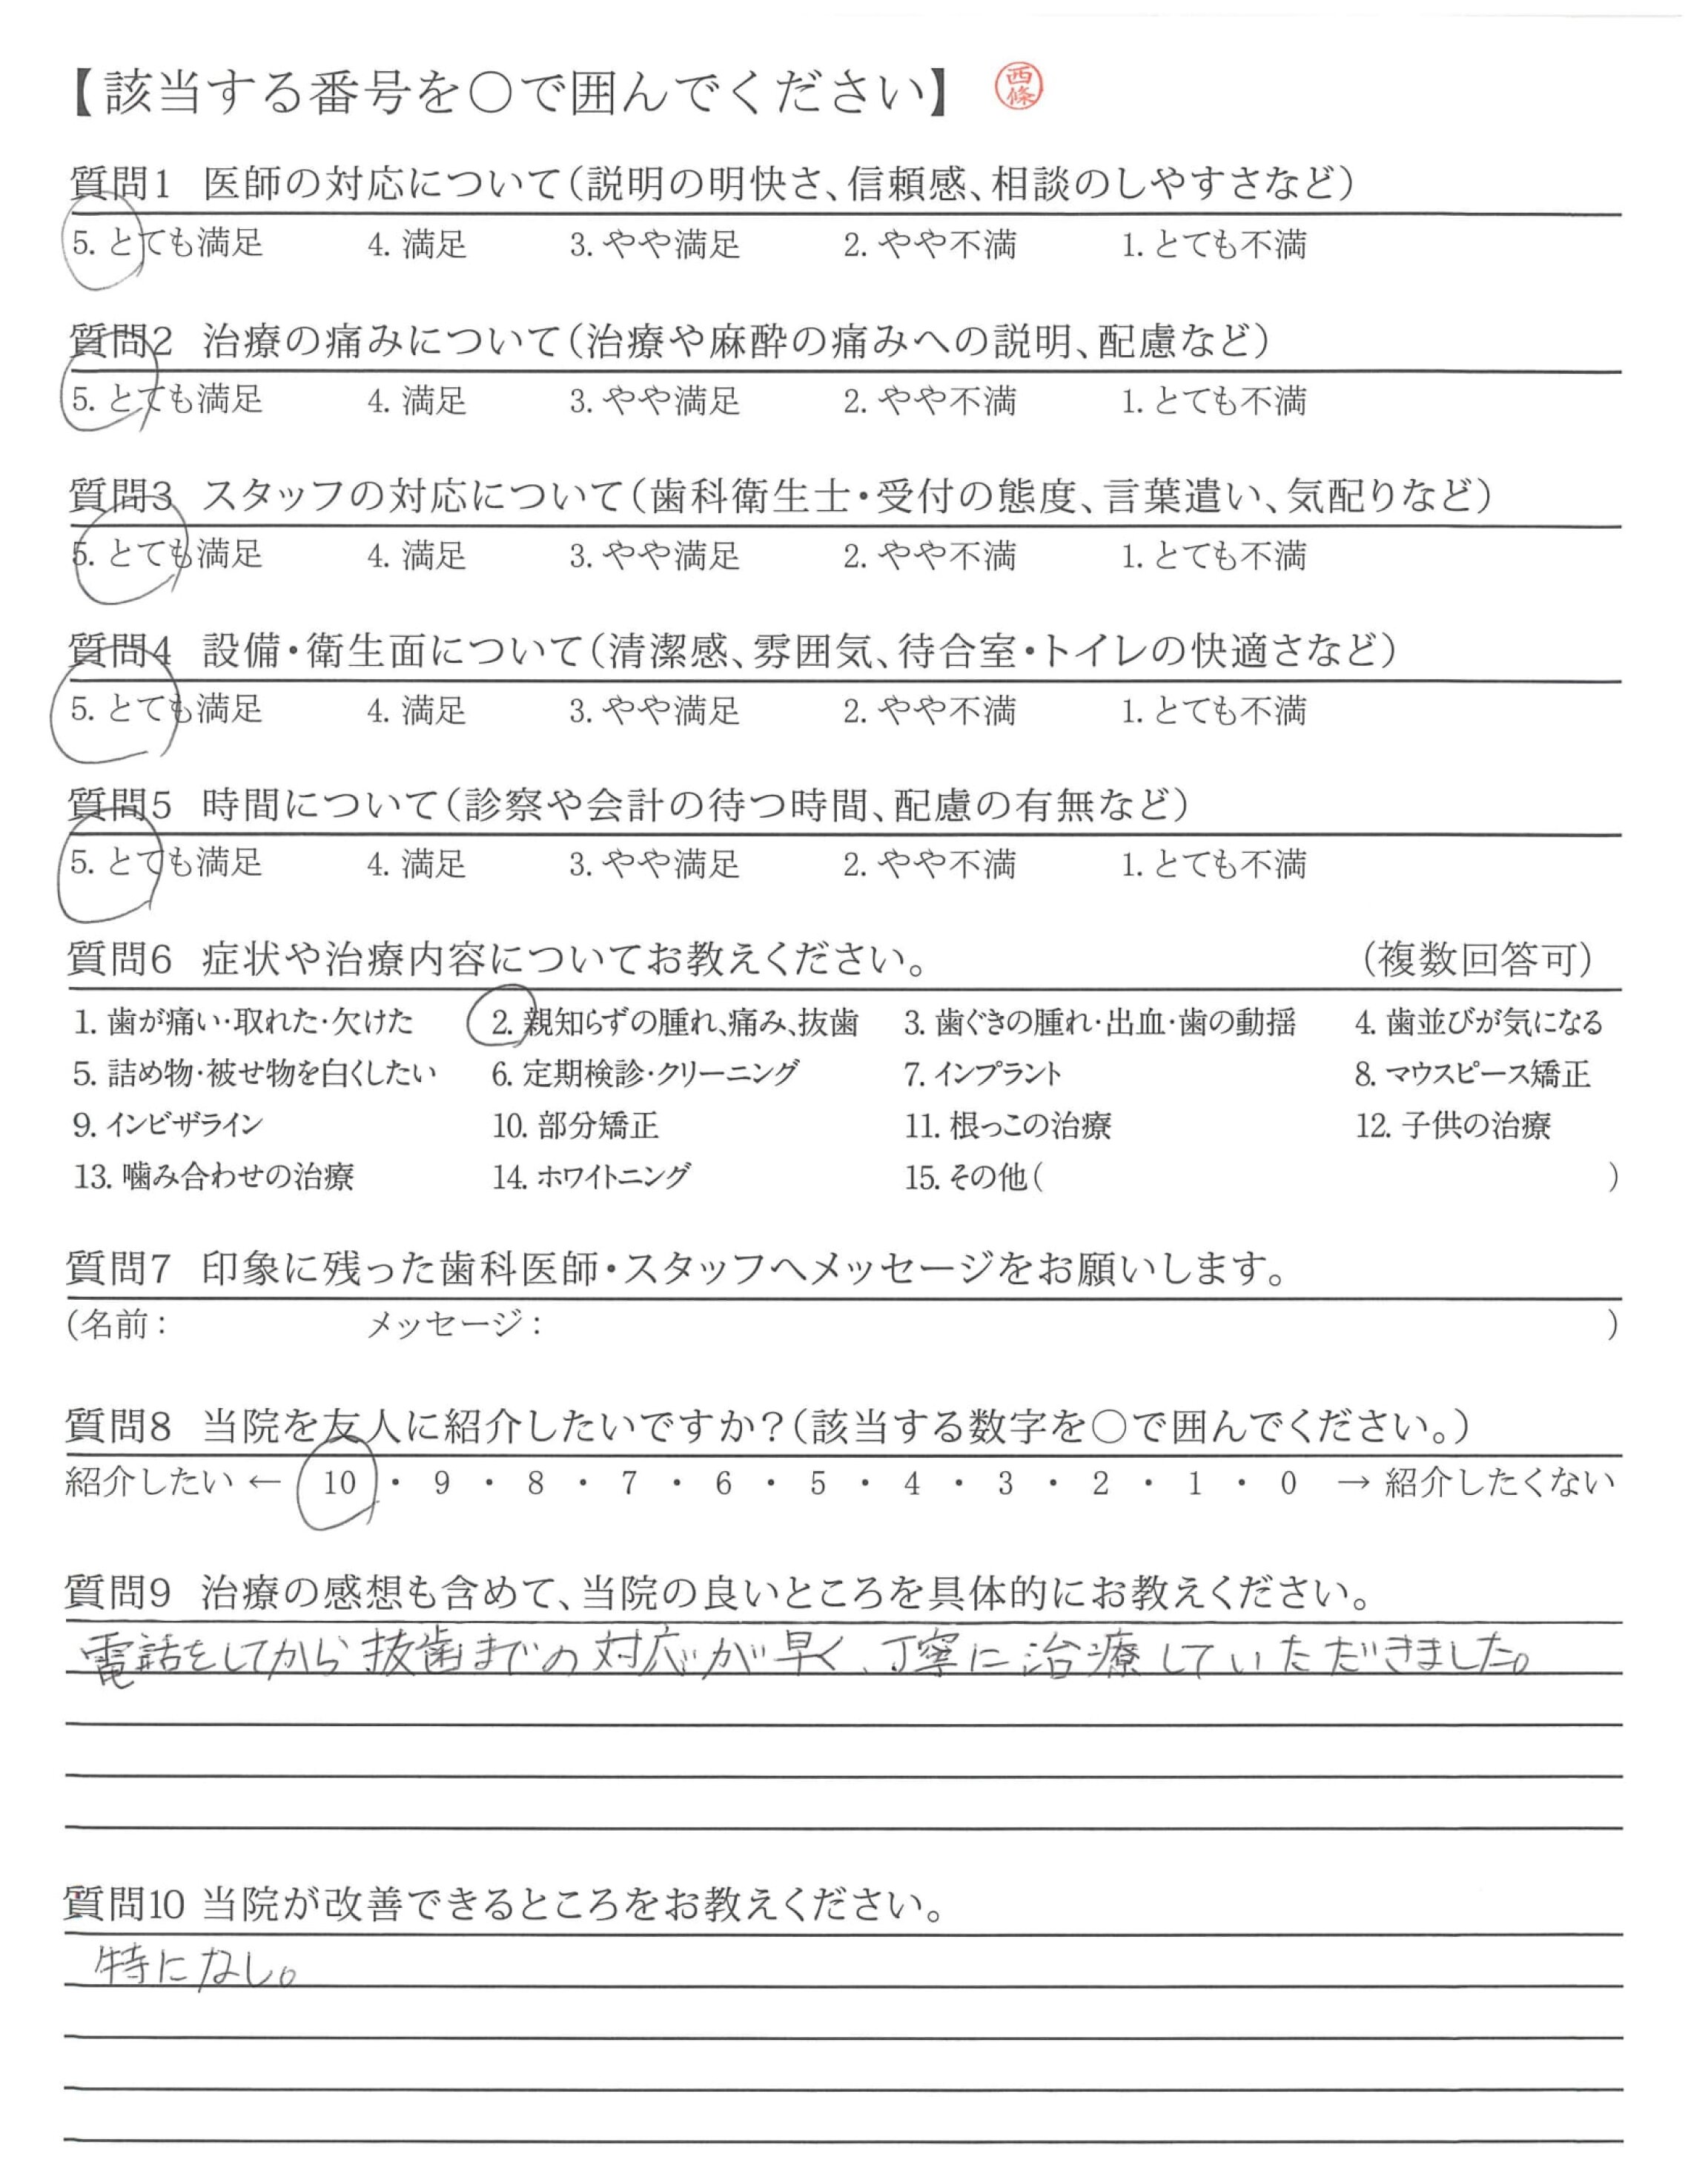 【該当する番号を○で囲んでください】 西條
質問1 医師の対応について(説明の明快さ、信頼感、相談のしやすさなど)
5. とても満足 4. 満足 3. やや満足 2. やや不満 1. とても不満
質問2 治療の痛みについて(治療や麻酔の痛みへの説明、配慮など)
5. とても満足 4. 満足 3. やや満足 2. やや不満 1. とても不満
質問3 スタッフの対応について(歯科衛生士・受付の態度、言葉遣い、気配りなど)
5. とても満足 4. 満足 3. やや満足 2. やや不満 1. とても不満
質問4 設備・衛生面について(清潔感、雰囲気、待合室・トイレの快適さなど)
5. とても満足 4. 満足 3. やや満足 2. やや不満 1. とても不満
質問5 時間について(診察や会計の待つ時間、配慮の有無など)
5. とても満足 4. 満足 3. やや満足 2. やや不満 1. とても不満
質問6 症状や治療内容についてお教えください。 (複数回答可)
1. 歯が痛い・取れた・欠けた 2. 親知らずの腫れ、痛み、抜歯 3. 歯ぐきの腫れ・出血・歯の動揺 4. 歯並びが気になる
5. 詰め物・被せ物を白くしたい 6. 定期検診・クリーニング 7. インプラント 8. マウスピース矯正
9. インビザライン 10. 部分矯正 11. 根っこの治療 12. 子供の治療
13. 噛み合わせの治療 14. ホワイトニング 15. その他( )
質問7 印象に残った歯科医師・スタッフへメッセージをお願いします。
(名前: メッセージ: )
質問8 当院を友人に紹介したいですか?(該当する数字を○で囲んでください。)
紹介したい ← 10 ・ 9 ・ 8 ・ 7 ・ 6 ・ 5 ・ 4 ・ 3 ・ 2 ・ 1 ・ 0 → 紹介したくない
質問9 治療の感想も含めて、当院の良いところを具体的にお教えください。
電話をしてから抜歯までの対応が早く、丁寧に治療していただきました。
質問10 当院が改善できるところをお教えください。
特になし。